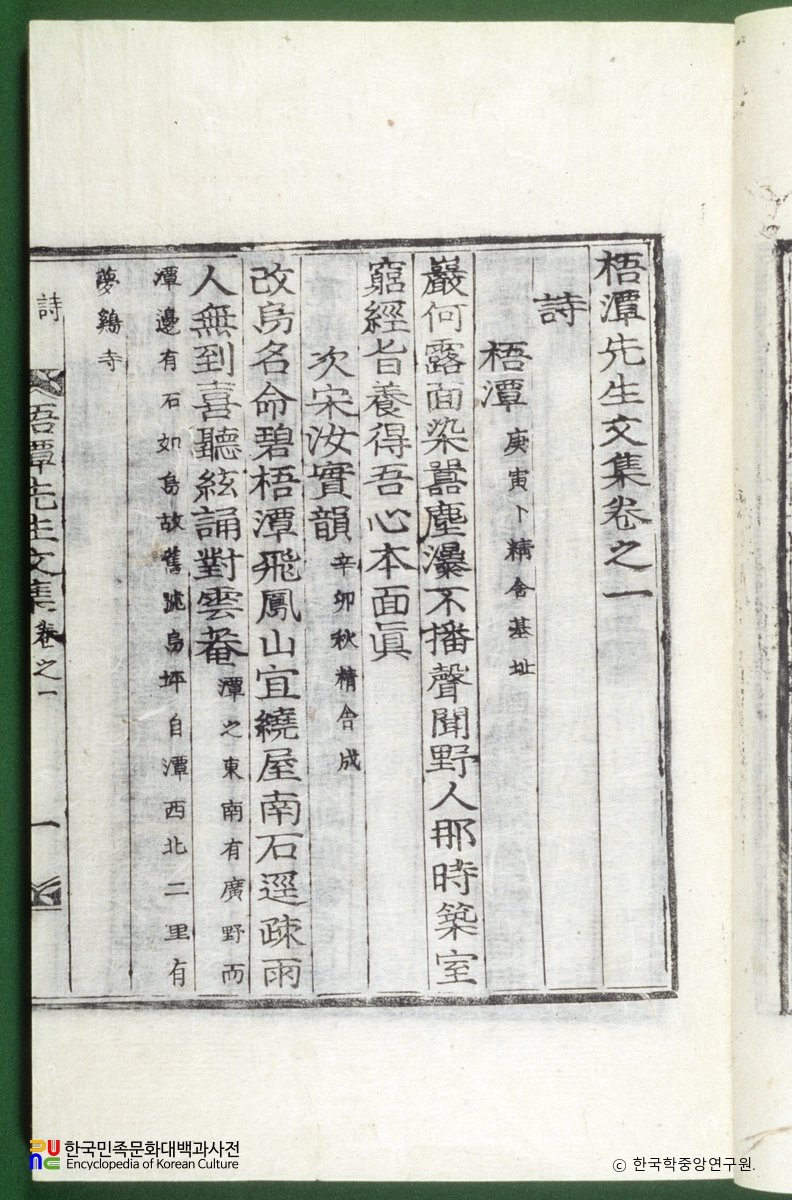 梧潭先生文集卷之一
詩
梧潭 庚寅卜精舍基址
巖何露面染囂塵瀑不播聲聞野人那時築室
窮經旨養得吾心本面眞
次宋汝實韻 辛卯秋精舍成
改舃名命碧梧潭飛鳳山宜繞屋南石逕疎雨
人無到喜聽絃誦對雲菴 潭之東南有廣野而
潭邊有石如舃故舊號舃坪自潭西北二里有
夢鷄寺
詩
梧潭先生文集 卷之一
一
한국민족문화대백과사전
Encyclopedia of Korean Culture
ⓒ 한국학중앙연구원.